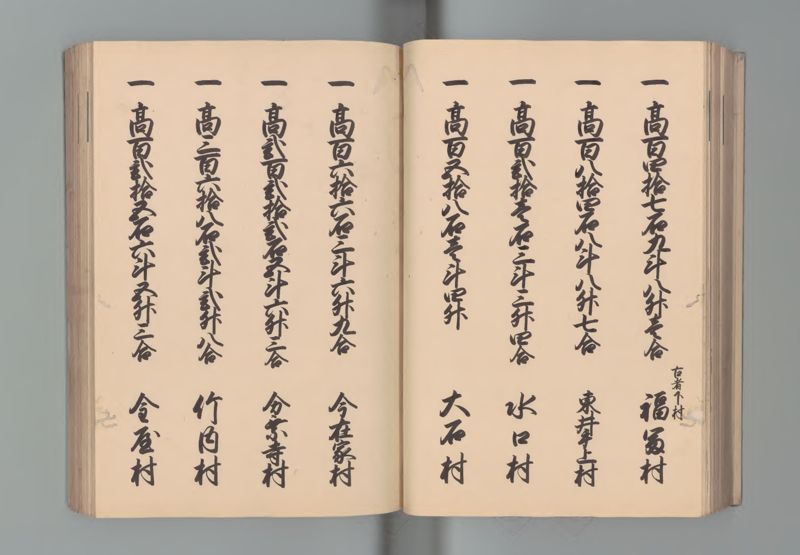 一 高百四拾七石九斗八升壱合
古者下村
福富村
一 高百八拾四石八斗八升七合
東井上村
一 高百弐拾壱石三斗三升四合
水口村
一 高百五拾八石壱斗四升
大石村
一 高百六拾六石三斗六升九合
今在家村
一 高弐百弐拾弐石五斗六升三合
寺村
一 高三百六拾八石弐斗弐升八合
竹内村
一 高百弐拾五石六斗五升三合
今屋村